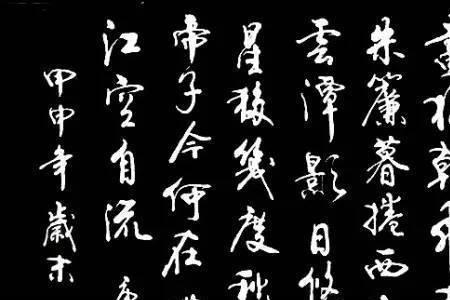 畫棟朝飛
朱簾暮捲西
雲潭影日悠
星移幾度秋
帝子今何在
江空自流
甲申年歲末